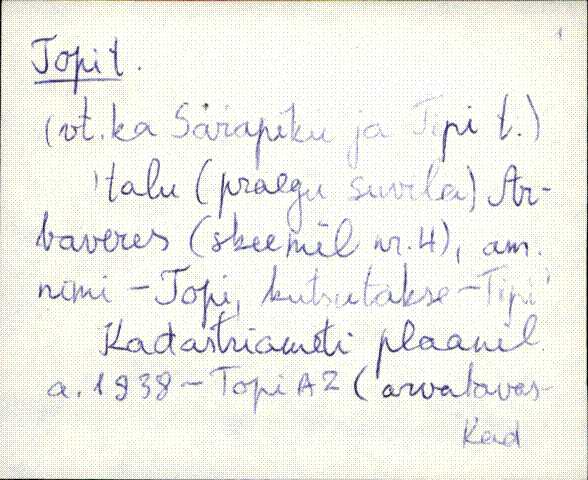 Topi t.
(vt. ka Särapiku ja Tipi t.)
talu (praegu suvila) Ar-
baveres (skeemil nr. 4), am.
nimi - Topi, kutsutakse - Tipi
Kadastriameti plaanil
a. 1938 - Topi A2 (arvatavas-
Kad